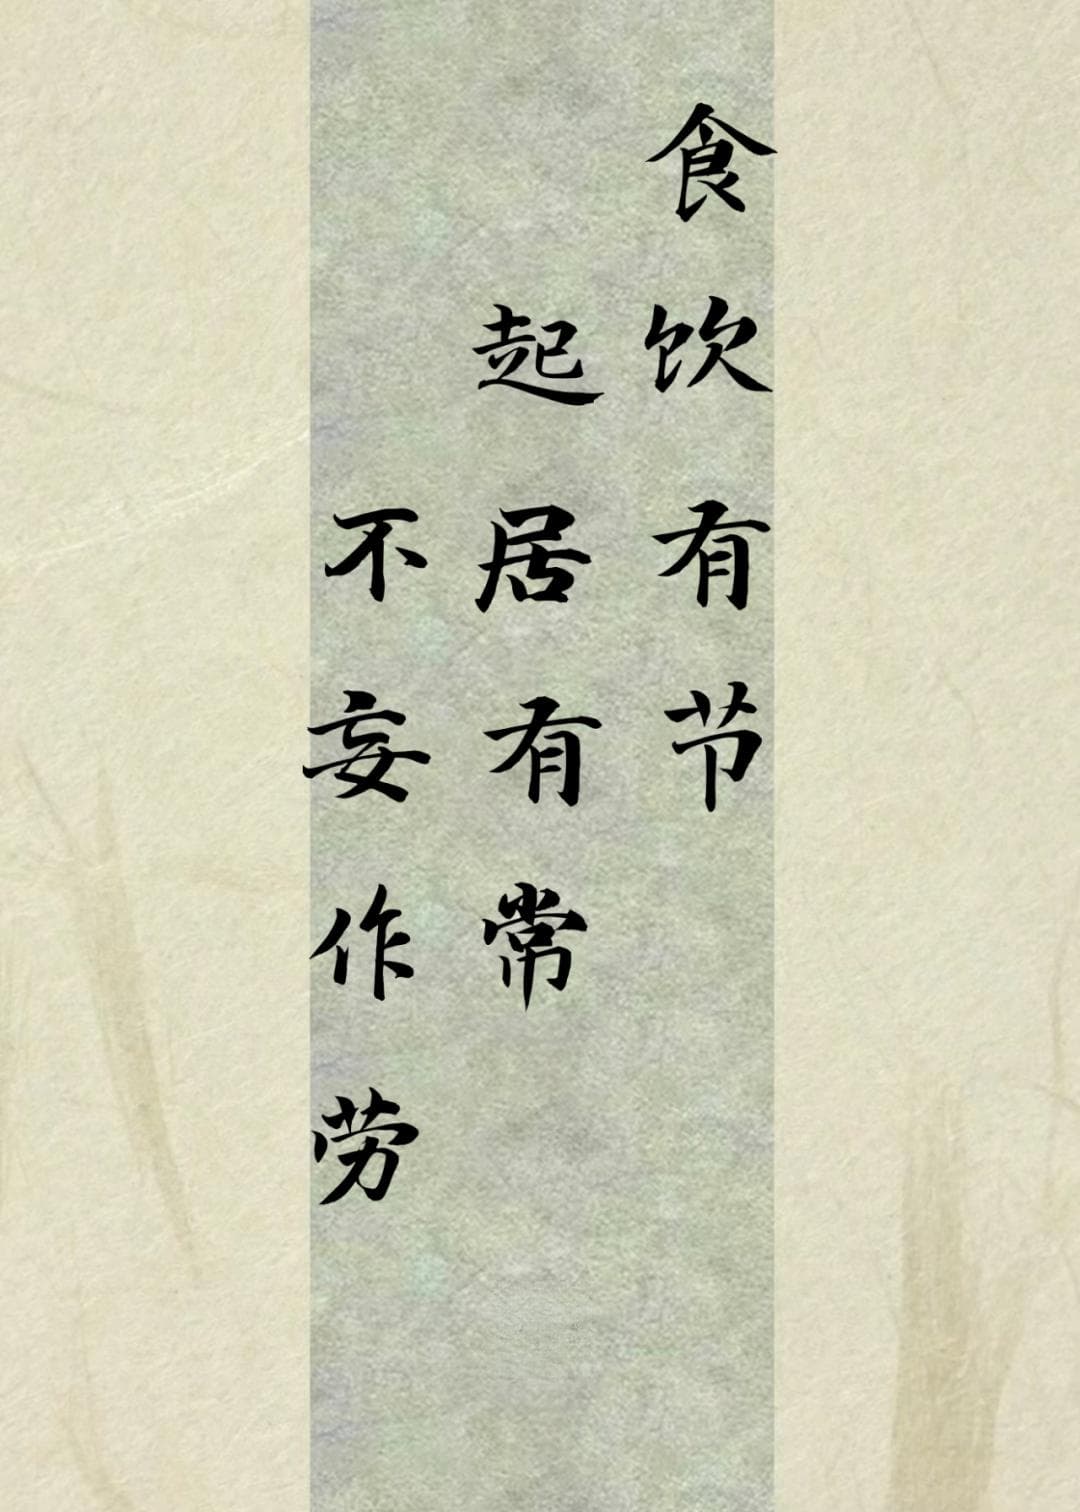 食饮有节
起居有常
不妄作劳